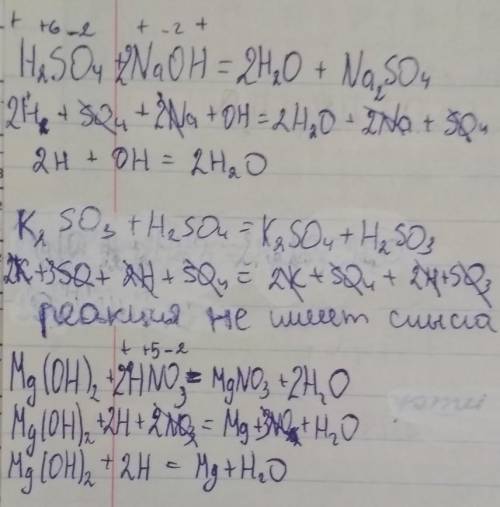 + +6 -2 + -2 +
H₂SO₄ + 2NaOH = 2H₂O + Na₂SO₄
2H₂ + SO₄ + 2Na + OH = 2H₂O + 2Na + SO₄
2H + OH = 2H₂O
K₂SO₃ + H₂SO₄ = K₂SO₄ + H₂SO₃
2K + SO + 2H + SO₄ = 2K + SO₄ + 2H + SO₃
реакция не имеет смысла
+ +5 -2
Mg(OH)₂ + 2HNO₃ = MgNO₃ + 2H₂O
Mg(OH)₂ + 2H + 2NO₃ = Mg + NO₃ + H₂O
Mg(OH)₂ + 2H = Mg + H₂O